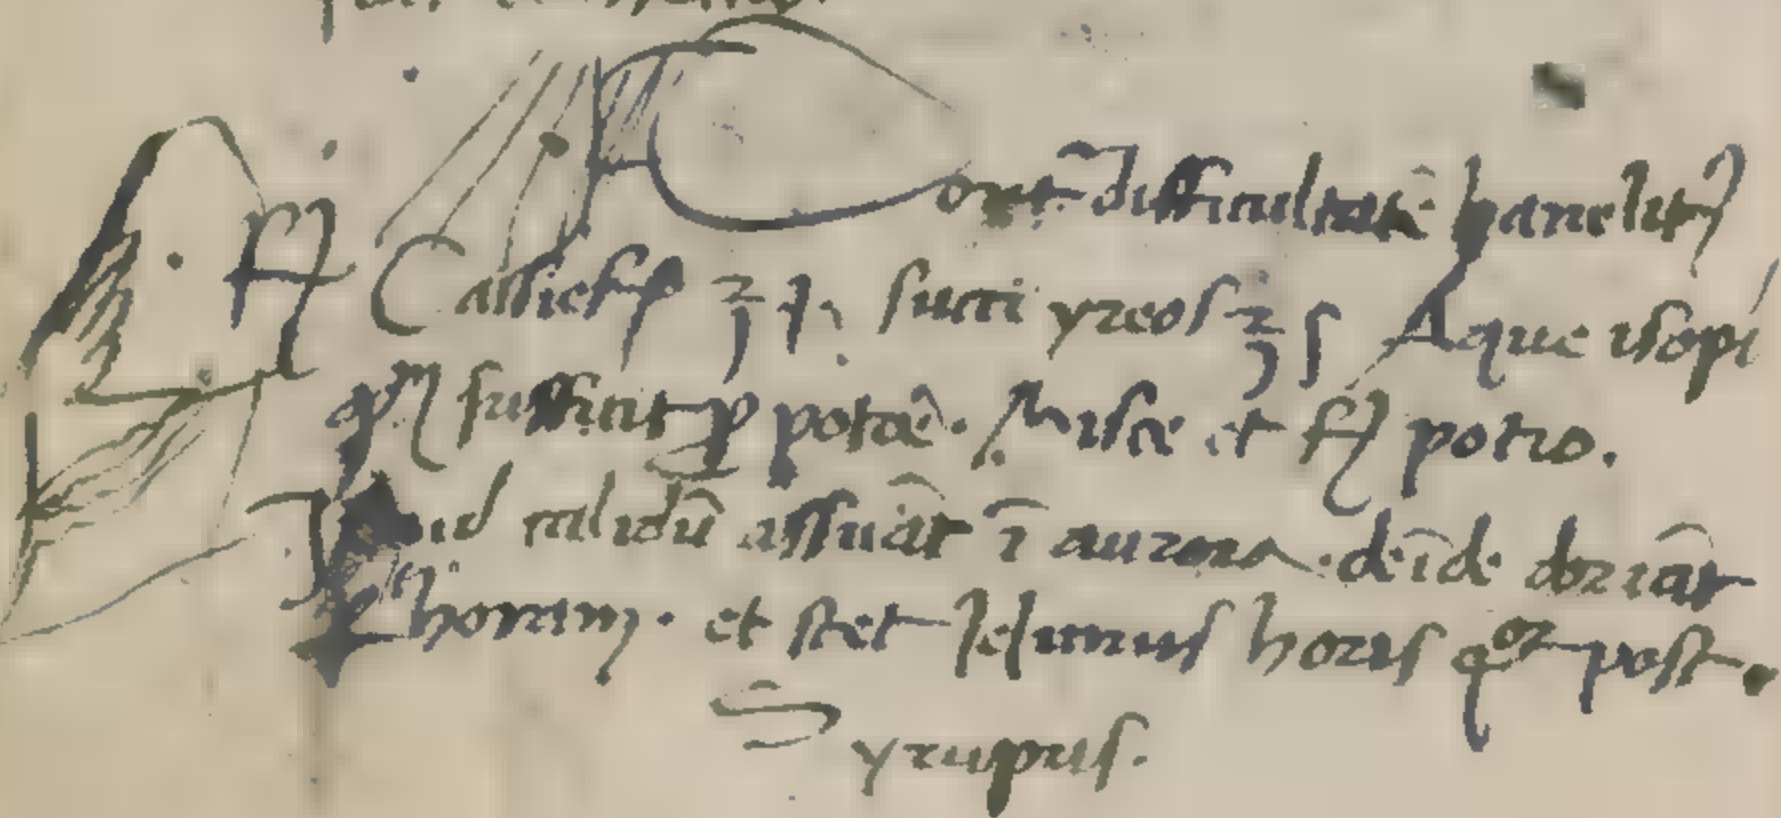 Cont̄ difficultatē hanelitꝰ
Cassief ℥ j. succi yreos ℥ ʃ Aque isopi
qm̄ sufficit p potōe. Misce et ft potio.
calidū assūat ī aurora. deīde dormiāt
horam. et stet Jejunus horis qͦr post.
Syrupus.